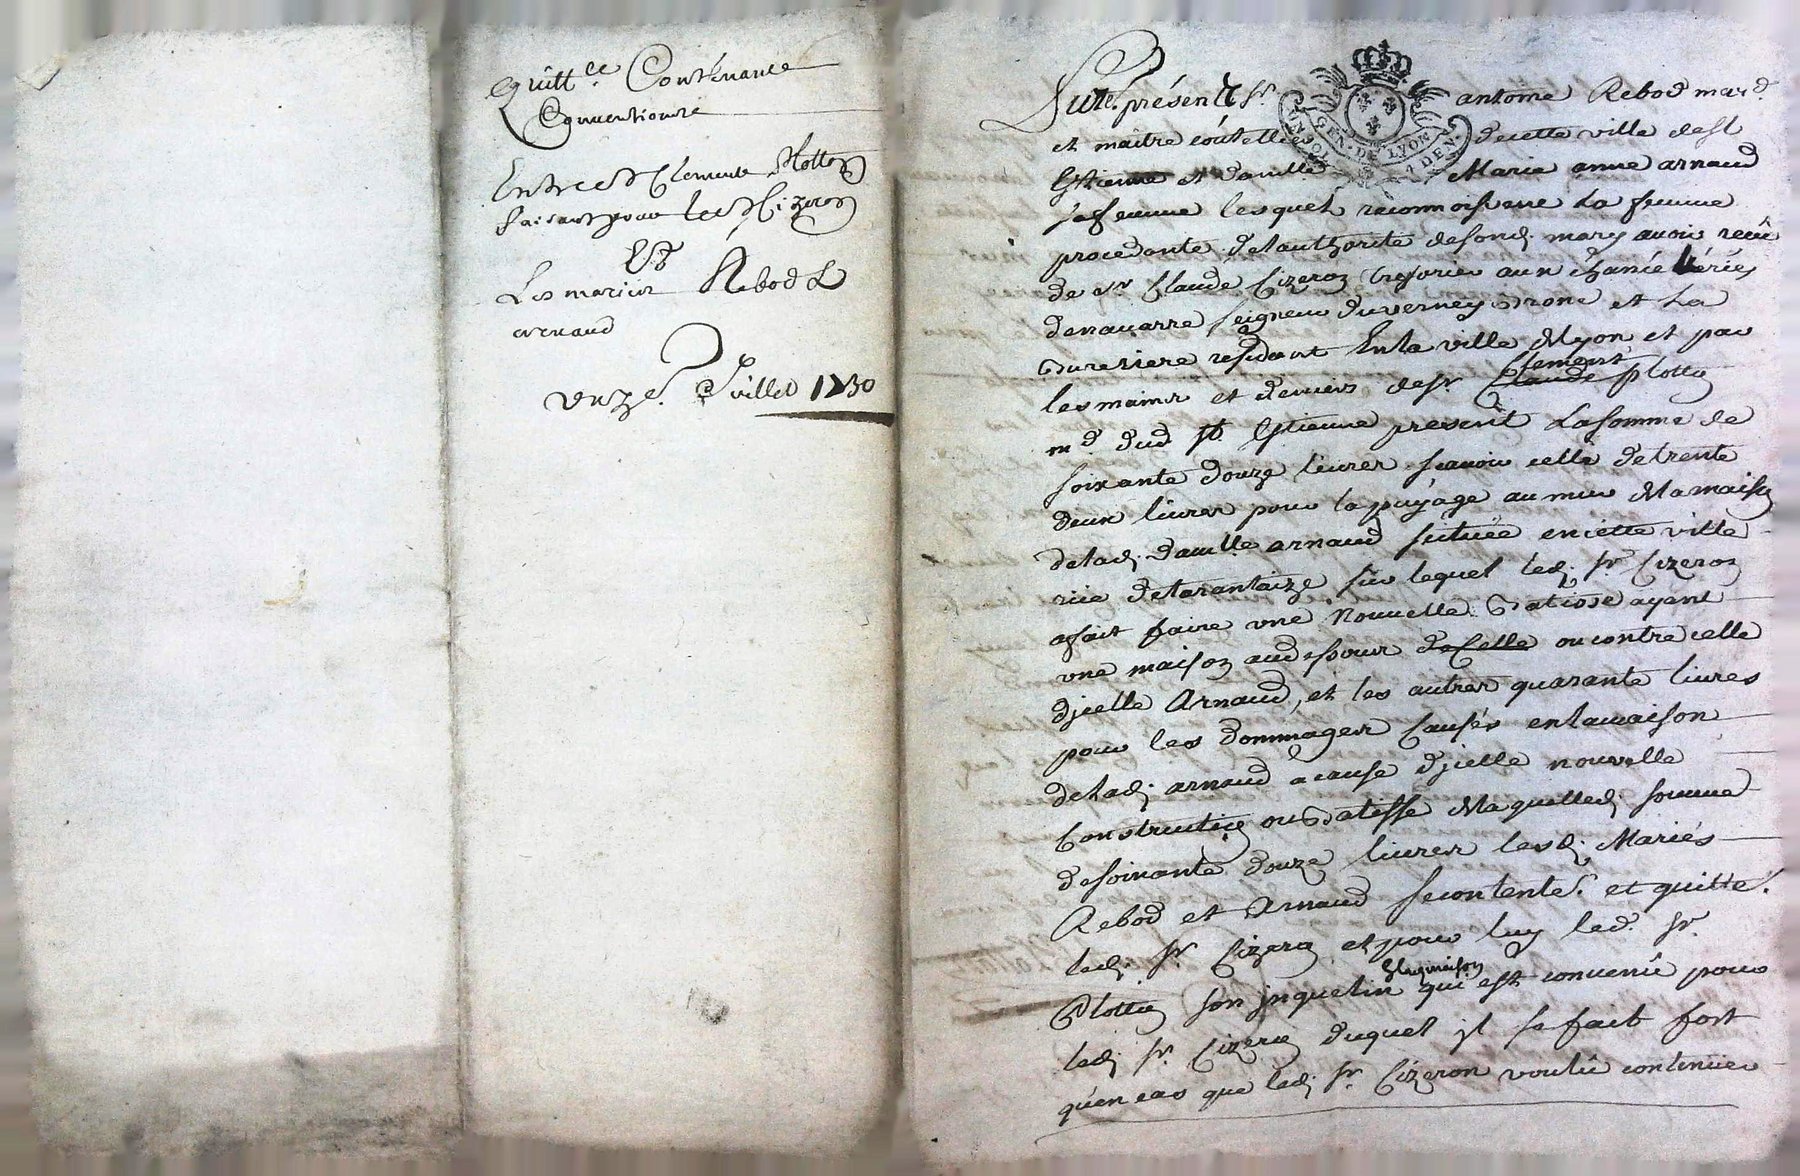 Quitt.ce Contenance
Conventionné
Entre s.r Clement Plotton
faisant pour le s.r Cizeron
Et
Les mariés Rebod &
arnaud
Unze.e Juillet 1730
Furt présent s.r antoine Rebod mar.d
et maitre coutellier de cette ville de st
GEN. DE LYON
Estienne et damlle Marie anne arnaud
sa femme lesquels reconnoissent La femme
procedante de lauthorité de sond. mary avoir reçu
de s.r Claude Cizeron Tresorier aux
denavarre seigneur duverney et La
residant En la ville de lyon et par
les mains et deniers de s.r Claude Clement plotton
m.d dud st Estienne present La somme de
soixante douze livres scavoir celle de trente
deux livres pour lapuyage au mur de la maison
de lad. damlle arnaud scituée en cette ville
rüe de tarantaize sur lequel led. s.r Cizeron
a fait faire une Nouvelle Batisse ayant
une maison audessous de Celle ou contre celle
d'jcelle Arnaud, et les autres quarante livres
pour les dommages Causés en la maison
de lad. arnaud a cause d'jcelle nouvelle
Construction ou Batisse de laquelled. somme
de soixante douze livres lesd. Mariés
Rebod et Arnaud se contente.t et quitte.t
led. s.r Cizeron et pour luy led. s.r
Plotton son jnquelin de lad maison qui est convenû pour
led. s.r Cizeron duquel jl se fait fort
qu'en cas que led. s.r Cizeron voulû continüer